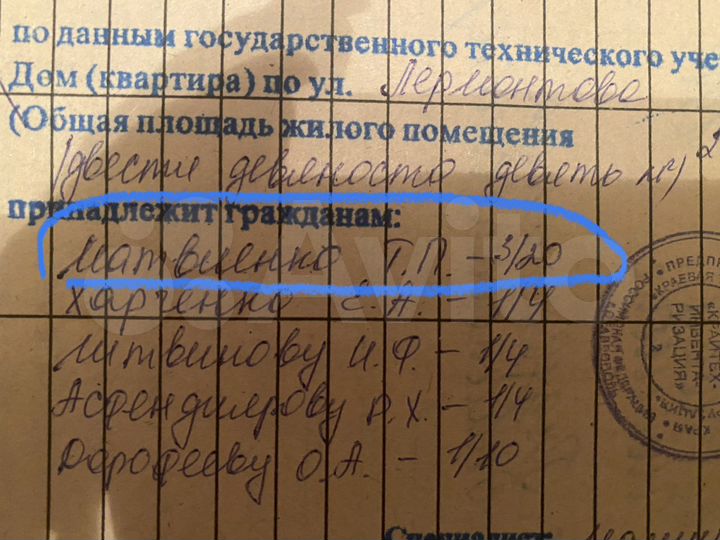 по данным государственного технического уче
Дом (квартира) по ул. Лермонтова
(Общая площадь жилого помещения
(двести девяносто девять м²)
принадлежит гражданам:
Матвиенко Т.П. – 3/20
Харченко Е.А. – 1/4
Литвинову И.Ф. – 1/4
Асфендиярову Р.Х. – 1/4
Дорофееву О.А. – 1/10
Специалист:
Avito
КРАЙТЕХ-
ИНВЕНТА-
РИЗАЦИЯ»